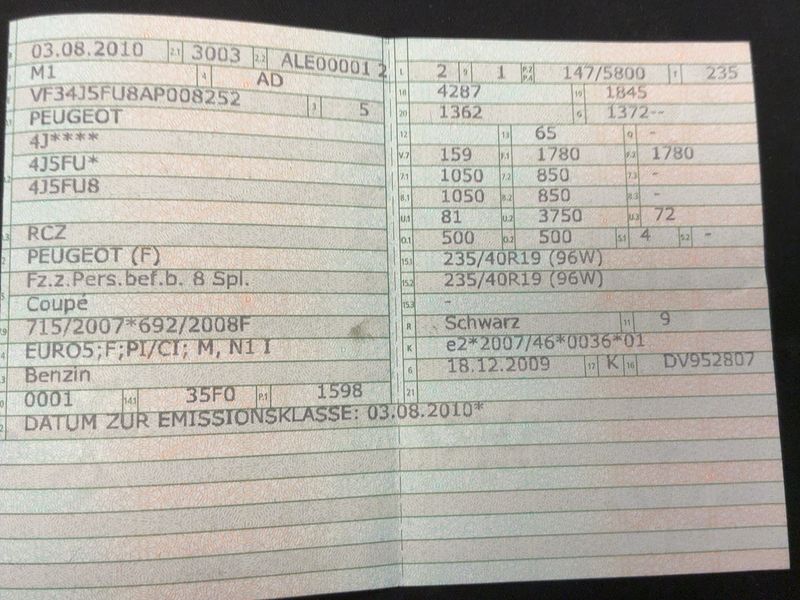 03.08.2010 2.1 3003 2.2 ALE00001 2
M1 4 AD
VF34J5FU8AP008252 3 5
PEUGEOT
4J****
4J5FU*
4J5FU8
RCZ
PEUGEOT (F)
Fz.z.Pers.bef.b. 8 Spl.
Coupé
715/2007*692/2008F
EURO5;F;PI/CI; M, N1 I
Benzin
0001 14.1 35F0 P.1 1598
DATUM ZUR EMISSIONSKLASSE: 03.08.2010*
L 2 9 1 P.2 P.4 147/5800 T 235
18 4287 19 1845
20 1362 G 1372--
12 13 65 Q -
V.7 159 F.1 1780 F.2 1780
7.1 1050 7.2 850 7.3 -
8.1 1050 8.2 850 8.3 -
U.1 81 U.2 3750 U.3 72
O.1 500 O.2 500 S.1 4 S.2 -
15.1 235/40R19 (96W)
15.2 235/40R19 (96W)
15.3 -
R Schwarz 11 9
K e2*2007/46*0036*01
6 18.12.2009 17 K 16 DV952807
21